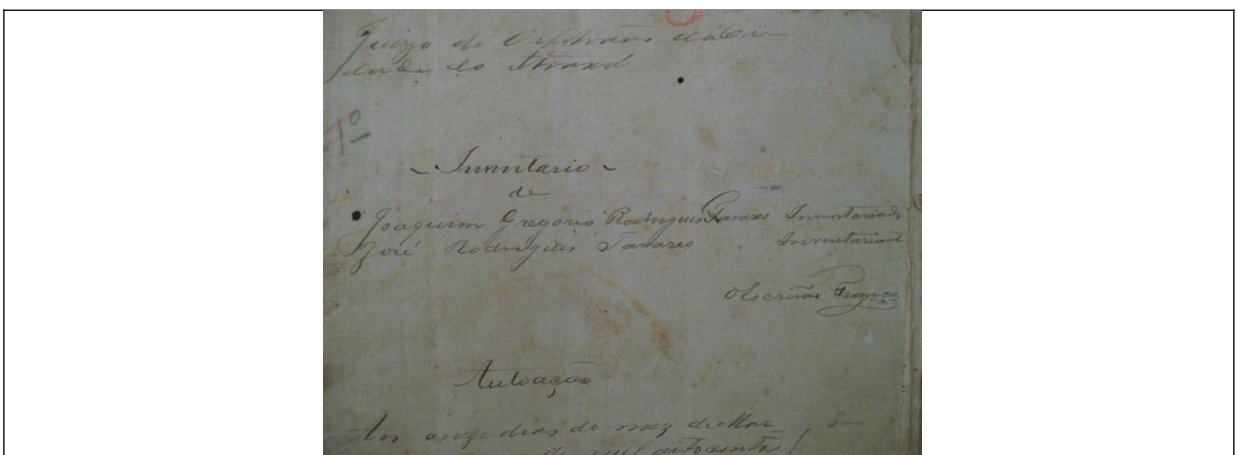 Juizo de Orphãos da Ci-
dade do Araxá
1º
- Inventario -
de
Joaquim Gregorio Rodrigues Tavares Inventariado
José Rodrigues Tavares . Inventariante
O Escrivão Franco
Autoação
Aos onze dias do mez de Mar-
de mil oitocentos